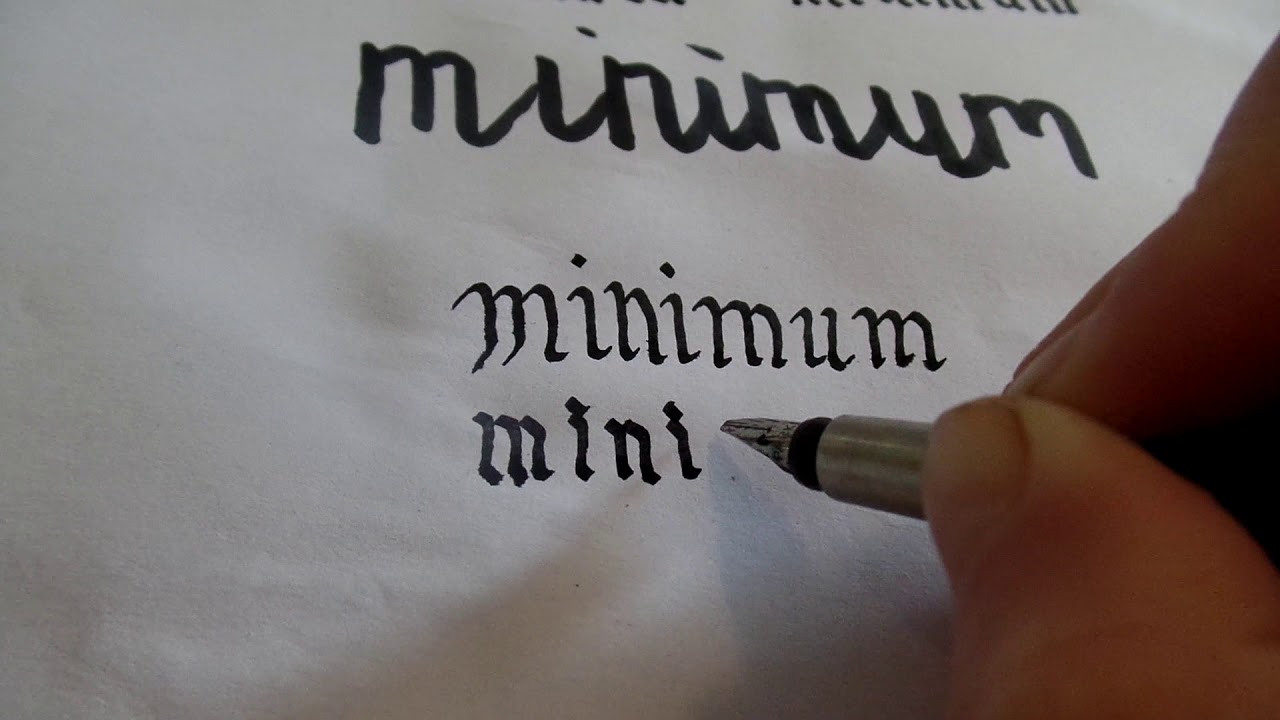 minimum
minimum
mini